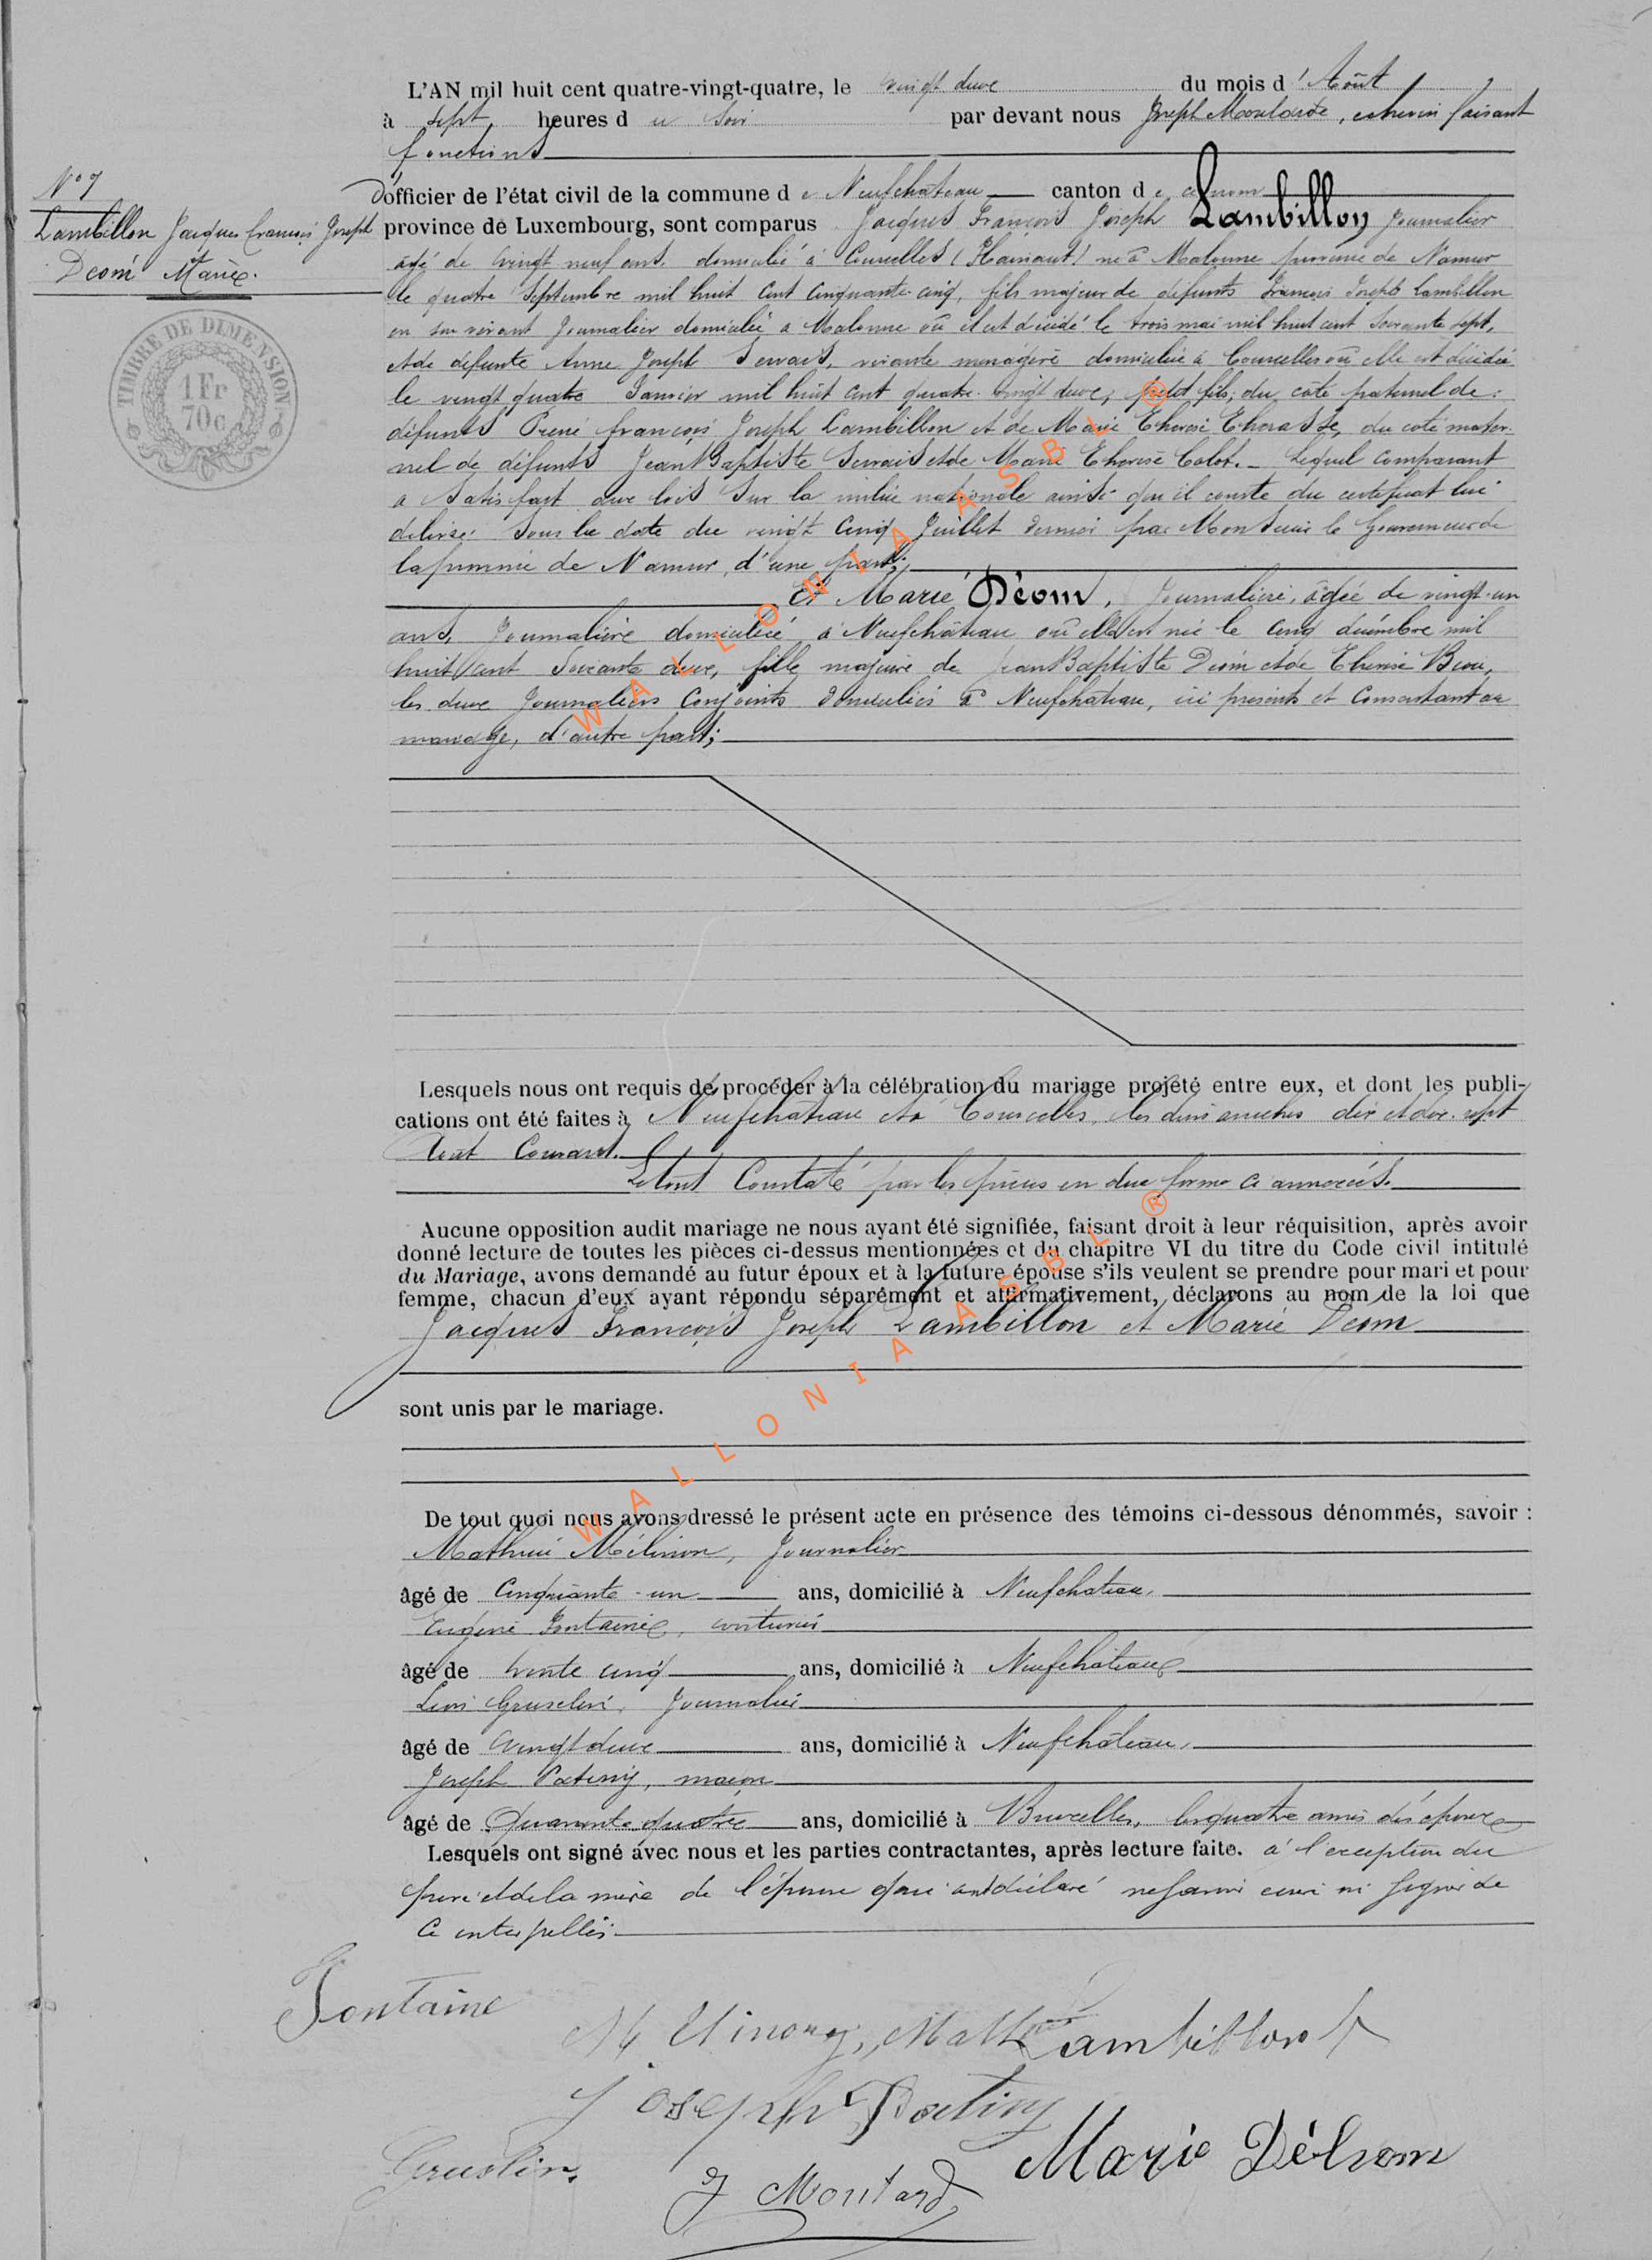 L'AN mil huit cent quatre-vingt-quatre, le vingt deux du mois d'Août
à sept heures du soir par devant nous Joseph , échevin faisant
fonctions
d'officier de l'état civil de la commune de Neufchâteau canton de ce nom
N° 7
Lambillon Jacques François Joseph
Deom Marie.
TIMBRE DE DIMENSION
1 Fr
70 c
province de Luxembourg, sont comparus Jacques François Joseph Lambillon, journalier
âgé de vingt neuf ans, domicilié à Courcelles (Hainaut) né à Malonne province de Namur
le quatre Septembre mil huit cent cinquante-cinq, fils majeur de défunts François Joseph Lambillon
en son vivant journalier domicilié à Malonne où il est décédé le trois mai mil huit cent soixante sept,
et de défunte Anne Joseph Servais, vivante ménagère domiciliée à Courcelles où elle est décédée
le vingt quatre Janvier mil huit cent quatre vingt deux; petit fils, du côté paternel de:
défunts François Joseph Lambillon et de Marie Thérèse , du coté mater-
nel de défunts Jean Baptiste Servais et de Marie Thérèse Colot. _ Lequel comparant
a satisfait aux lois sur la milice nationale ainsi qu'il conste du certificat lui
délivré sous la date du vingt cinq Juillet dernier par Monsieur le Gouverneur de
la province de Namur, d'une part;
Et Marie Déom, Journalière, âgée de vingt-un
ans, Journalière domiciliée à Neufchâteau où elle est née le cinq décembre mil
huit cent soixante deux, fille majeure de Jean Baptiste Déom et de Thérèse
les deux Journaliers conjoints domiciliés à Neufchâteau, ici présents et consentant au
mariage, d'autre part;
Lesquels nous ont requis de procéder à la célébration du mariage projeté entre eux, et dont les publi-
cations ont été faites à Neufchâteau et à Courcelles, les dimanches dix et dix-sept
Août Courant.
Le tout Constaté par les pièces en due forme ci annexées.
Aucune opposition audit mariage ne nous ayant été signifiée, faisant droit à leur réquisition, après avoir
donné lecture de toutes les pièces ci-dessus mentionnées et du chapitre VI du titre du Code civil intitulé
du Mariage, avons demandé au futur époux et à la future épouse s'ils veulent se prendre pour mari et pour
femme, chacun d'eux ayant répondu séparément et affirmativement, déclarons au nom de la loi que
Jacques François Joseph Lambillon et Marie Déom
sont unis par le mariage.
De tout quoi nous avons dressé le présent acte en présence des témoins ci-dessous dénommés, savoir :
Mathieu , Journalier
âgé de Cinquante-un ans, domicilié à Neufchateau,
Eugène Fontaine,
âgé de trente cinq ans, domicilié à Neufchâteau
Léon , Journalier
âgé de vingt deux ans, domicilié à Neufchâteau,
Joseph , maçon
âgé de Quarante quatre ans, domicilié à Bruxelles, les quatre amis des époux
Lesquels ont signé avec nous et les parties contractantes, après lecture faite. à l'exception du
père et de la mère de l'épouse qui ont déclaré ne savoir écrire ni signer de
ce interpellés
Fontaine
Math Lambillon
Joseph
Marie Déhom
J
WALLONIA ASBL ®
WALLONIA ASBL ®